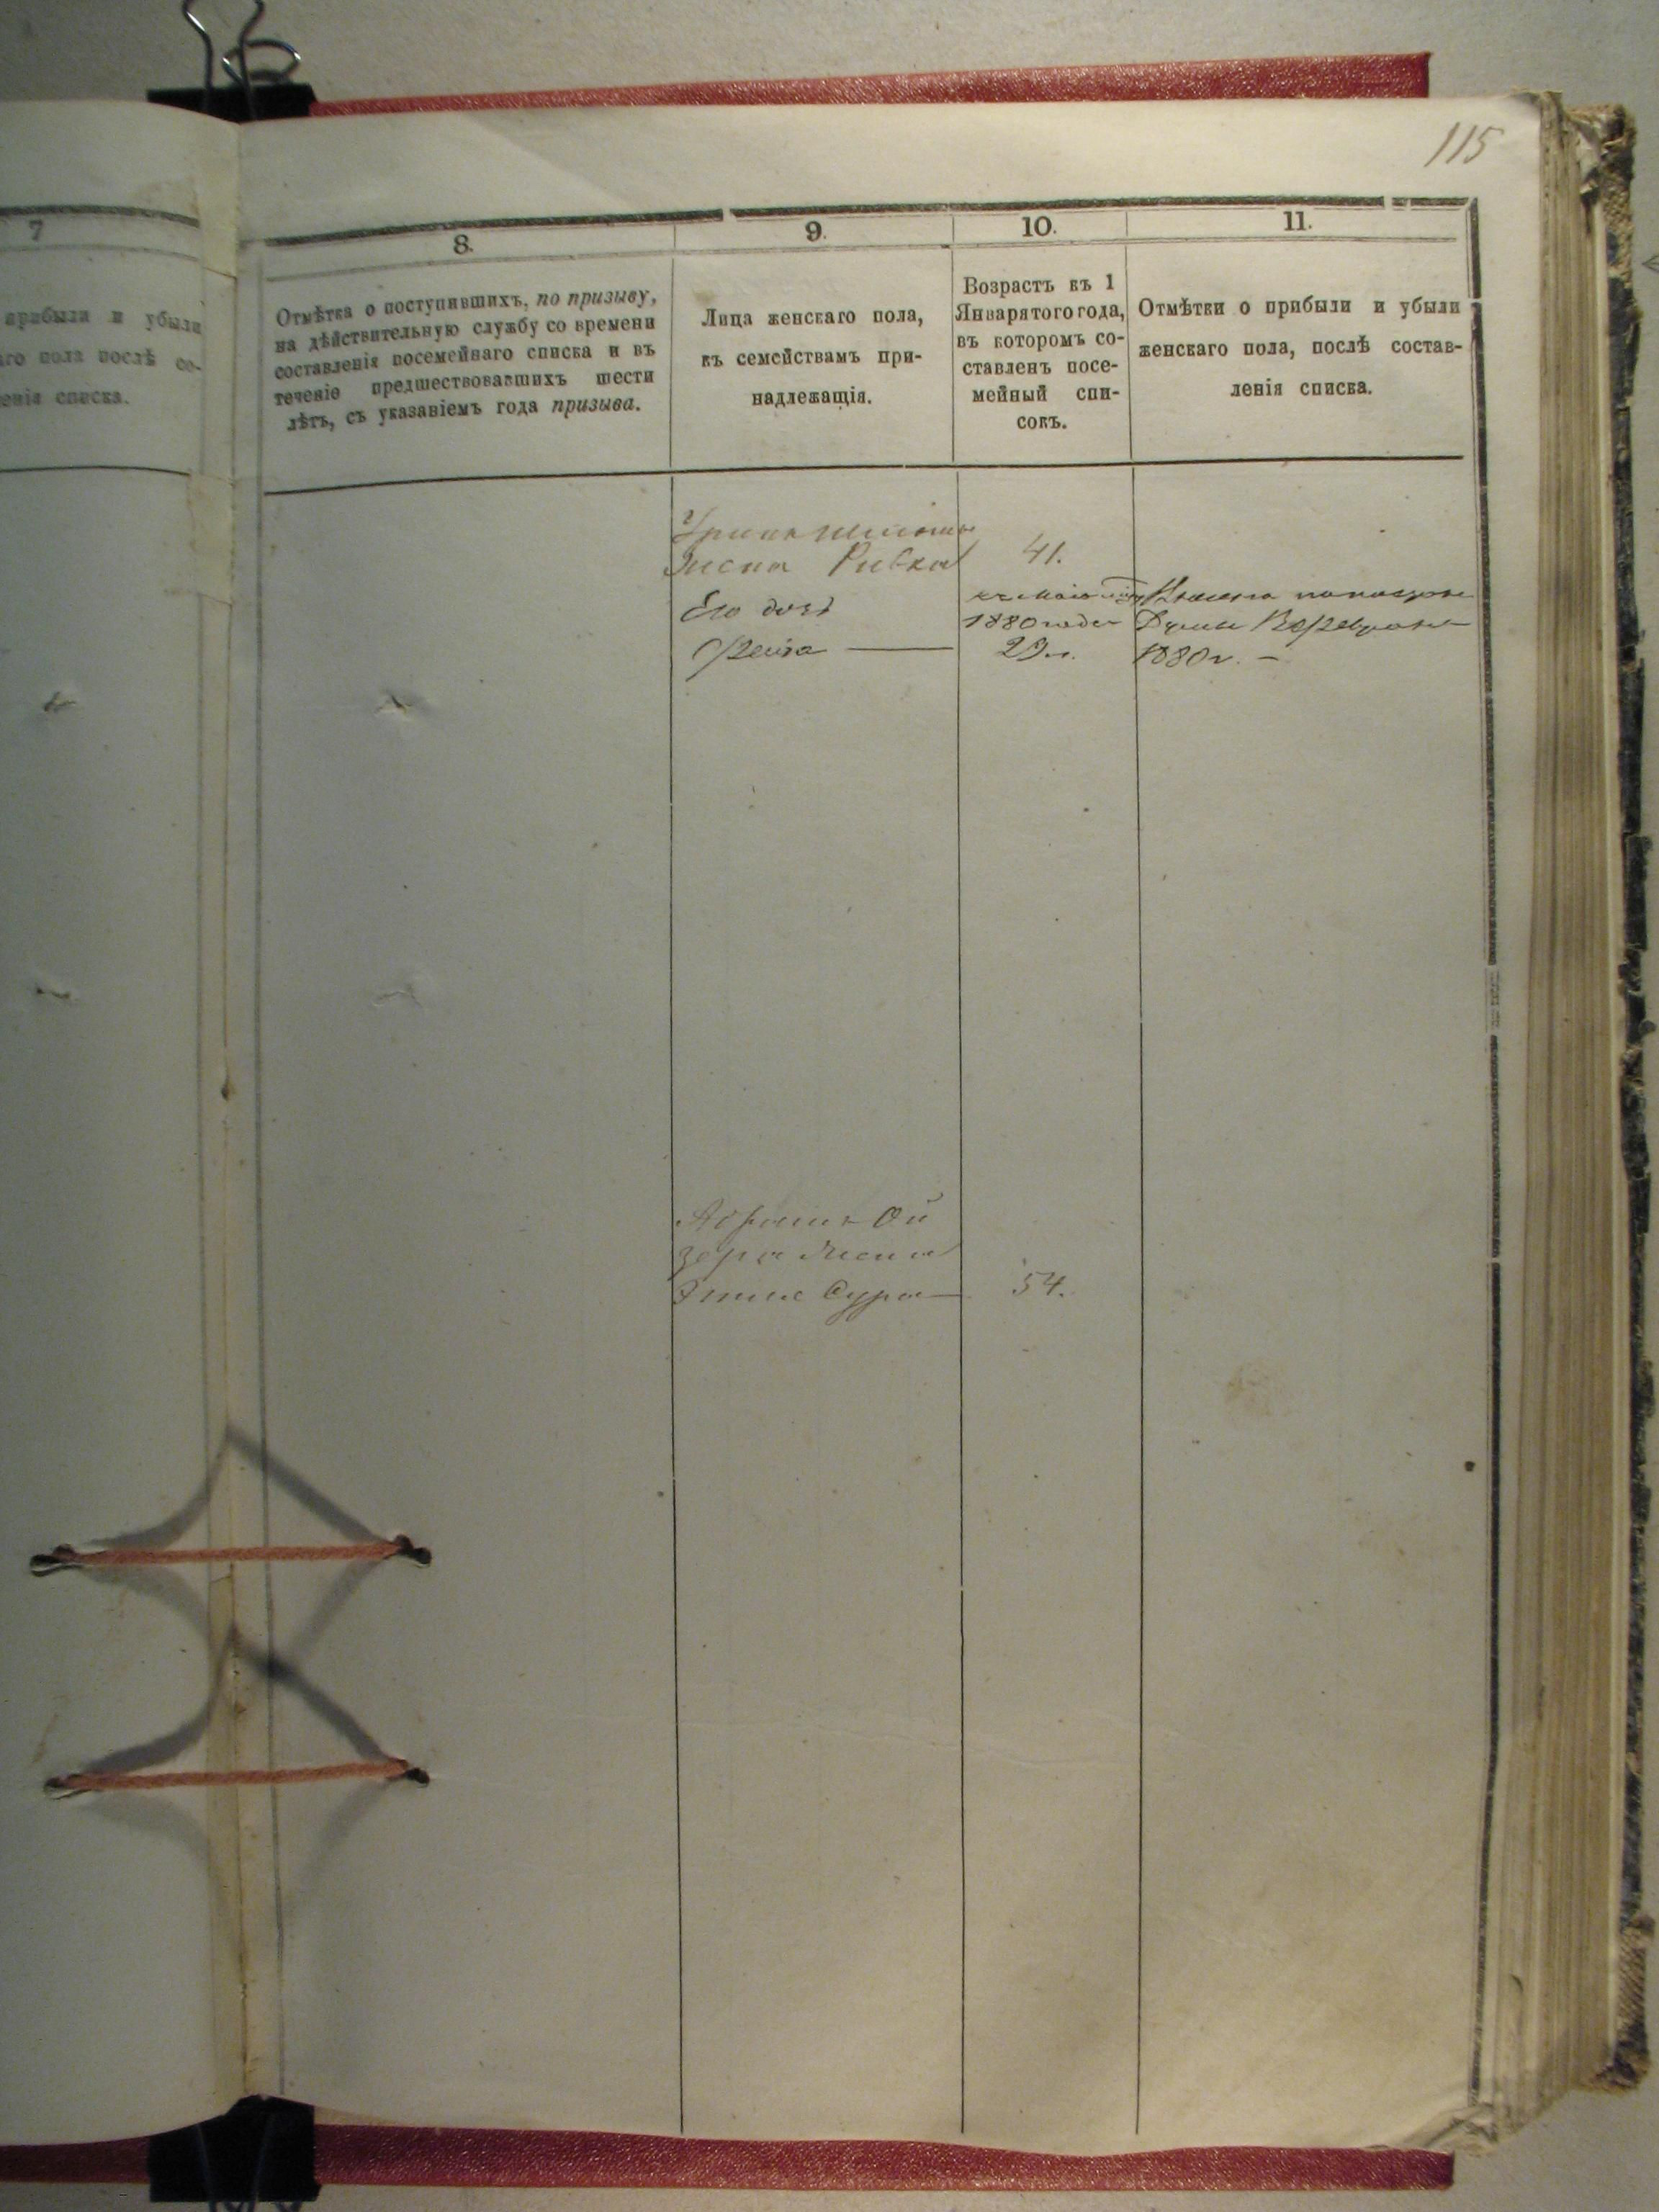 115
7
прибыли и убыли
аго пола послѣ со-
енія списка.
8.
Отмѣтка о поступившихъ, по призыву,
на дѣйствительную службу со времени
составленія посемейнаго списка и въ
теченіе предшествовавшихъ шести
лѣтъ, съ указаніемъ года призыва.
9.
Лица женскаго пола,
къ семействамъ при-
надлежащія.
10.
Возрастъ къ 1
Января того года,
въ которомъ со-
ставленъ посе-
мейный спи-
сокъ.
11.
Отмѣтки о прибыли и убыли
женскаго пола, послѣ состав-
ленія списка.
Ривка 41.
Его дочь
1880 года
29 л. 1880 г. –
Ой
зера жена
Сура 54.